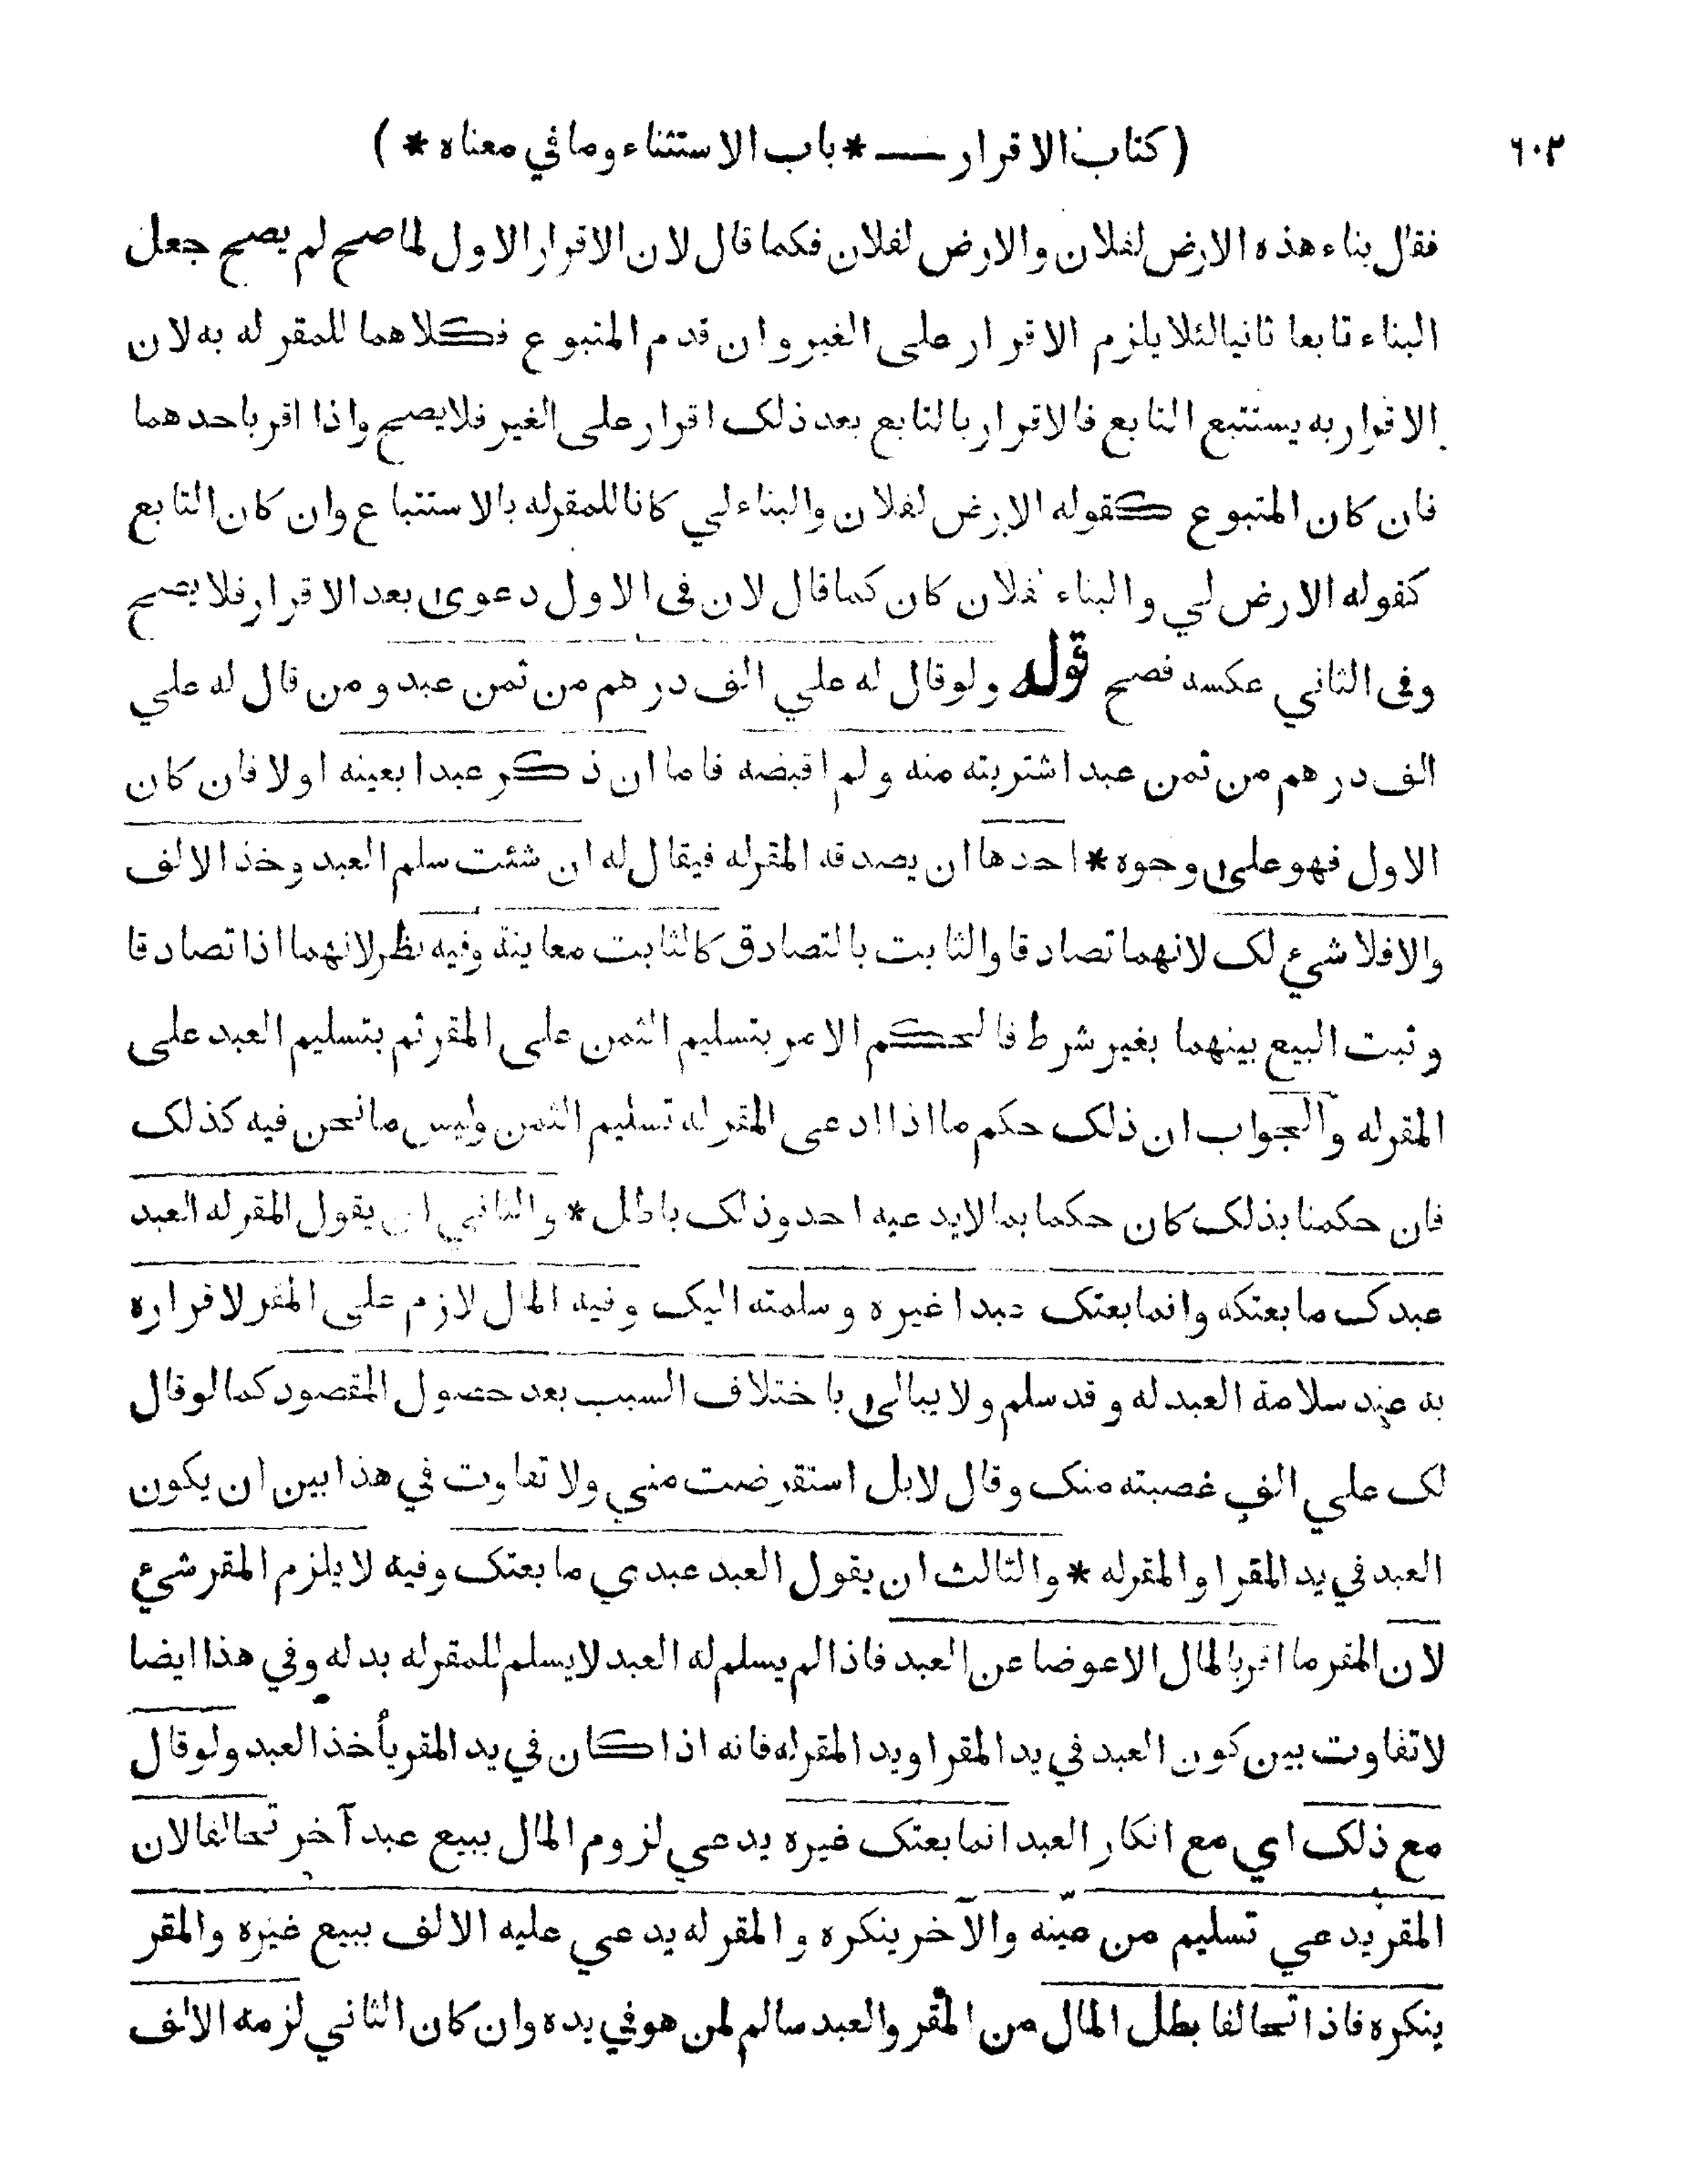 ٦٠٢ (كتاب الاقرار — * باب الاستثناء وما في معناه * )
فقال بناء هذه الارض لفلان والارض لفلان فكما قال لان الاقرار الاول لما صح لم يصح جعل
البناء تابعا ثانيا لئلا يلزم الاقرار على الغير وان قدم المتبوع فكلاهما للمقر له به لان
الاقرار به يستتبع التابع فالاقرار بالتابع بعد ذلك اقرار على الغير فلا يصح واذا اقر باحدهما
فان كان المتبوع كقوله الارض لفلان والبناء لي كانا للمقرله بالاستتباع وان كان التابع
كقوله الارض لي والبناء لفلان كان كما قال لان في الاول دعوى بعد الاقرار فلا يصح
وفى الثاني عكسه فصح قوله ولو قال له علي الف درهم من ثمن عبد ومن قال له علي
الف درهم من ثمن عبد اشتريته منه ولم اقبضه فاما ان ذكر عبدا بعينه اولا فان كان
الاول فهو على وجوه * احدها ان يصدقه المقرله فيقال له ان شئت سلم العبد وخذ الالف
والا فلا شيء لك لانهما تصادقا والثابت بالتصادق كالثابت معاينة وفيه نظر لانهما اذا تصادقا
وثبت البيع بينهما بغير شرط فالحكم الامر بتسليم الثمن على المقر ثم بتسليم العبد على
المقرله والجواب ان ذلك حكم ما اذا ادعى المقر له تسليم الثمن وليس ما نحن فيه كذلك
فان حكمنا بذلك كان حكما بما لا يدعيه احد وذلك باطل * والثاني ان يقول المقر له العبد
عبدك ما بعتكه وانما بعتك عبدا غيره وسلمته اليك وفيه المال لازم على المقر لاقراره
به عند سلامة العبد له وقد سلم ولا يبالى باختلاف السبب بعد حصول المقصود كما لو قال
لك علي الف غصبته منك وقال لا بل استقرضت مني ولا تفاوت في هذا بين ان يكون
العبد في يد المقر او المقرله * والثالث ان يقول العبد عبدي ما بعتك وفيه لا يلزم المقر شيء
لان المقر ما اقر بالمال الا عوضا عن العبد فاذا لم يسلم له العبد لا يسلم للمقرله بدله وفي هذا ايضا
لا تفاوت بين كون العبد في يد المقر او يد المقرله فانه اذا كان في يد المقر يأخذ العبد ولو قال
مع ذلك اي مع انكار العبد انما بعتك غيره يدعي لزوم المال ببيع عبد آخر تحالفا لان
المقر يدعي تسليم من عينه والآخر ينكره والمقر له يدعي عليه الالف ببيع غيره والمقر
ينكره فاذا تحالفا بطل المال من المقر والعبد سالم لمن هو في يده وان كان الثاني لزمه الالف